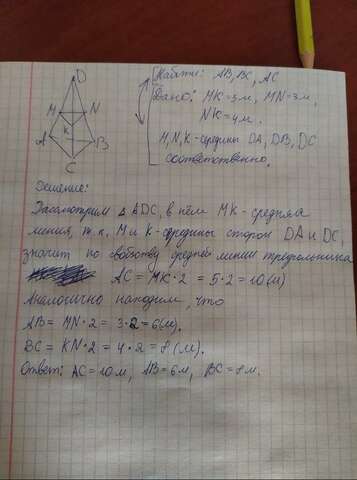 D
Найти: AB, BC, AC
Дано: MK=5м, MN=3м,
NK=4м.
M N
K
A
B
C
M, N, K - середины DA, DB, DC
соответственно.
Решение:
Рассмотрим △ ADC, в нём MK - средняя
линия, т.к. M и K - середины сторон DA и DC,
значит по свойству средней линии треугольника
AC = MK·2 = 5·2 = 10(м)
Аналогично находим, что
AB = MN·2 = 3·2 = 6(м).
BC = KN·2 = 4·2 = 8 (м).
Ответ: AC = 10м, AB = 6м, BC = 8м.